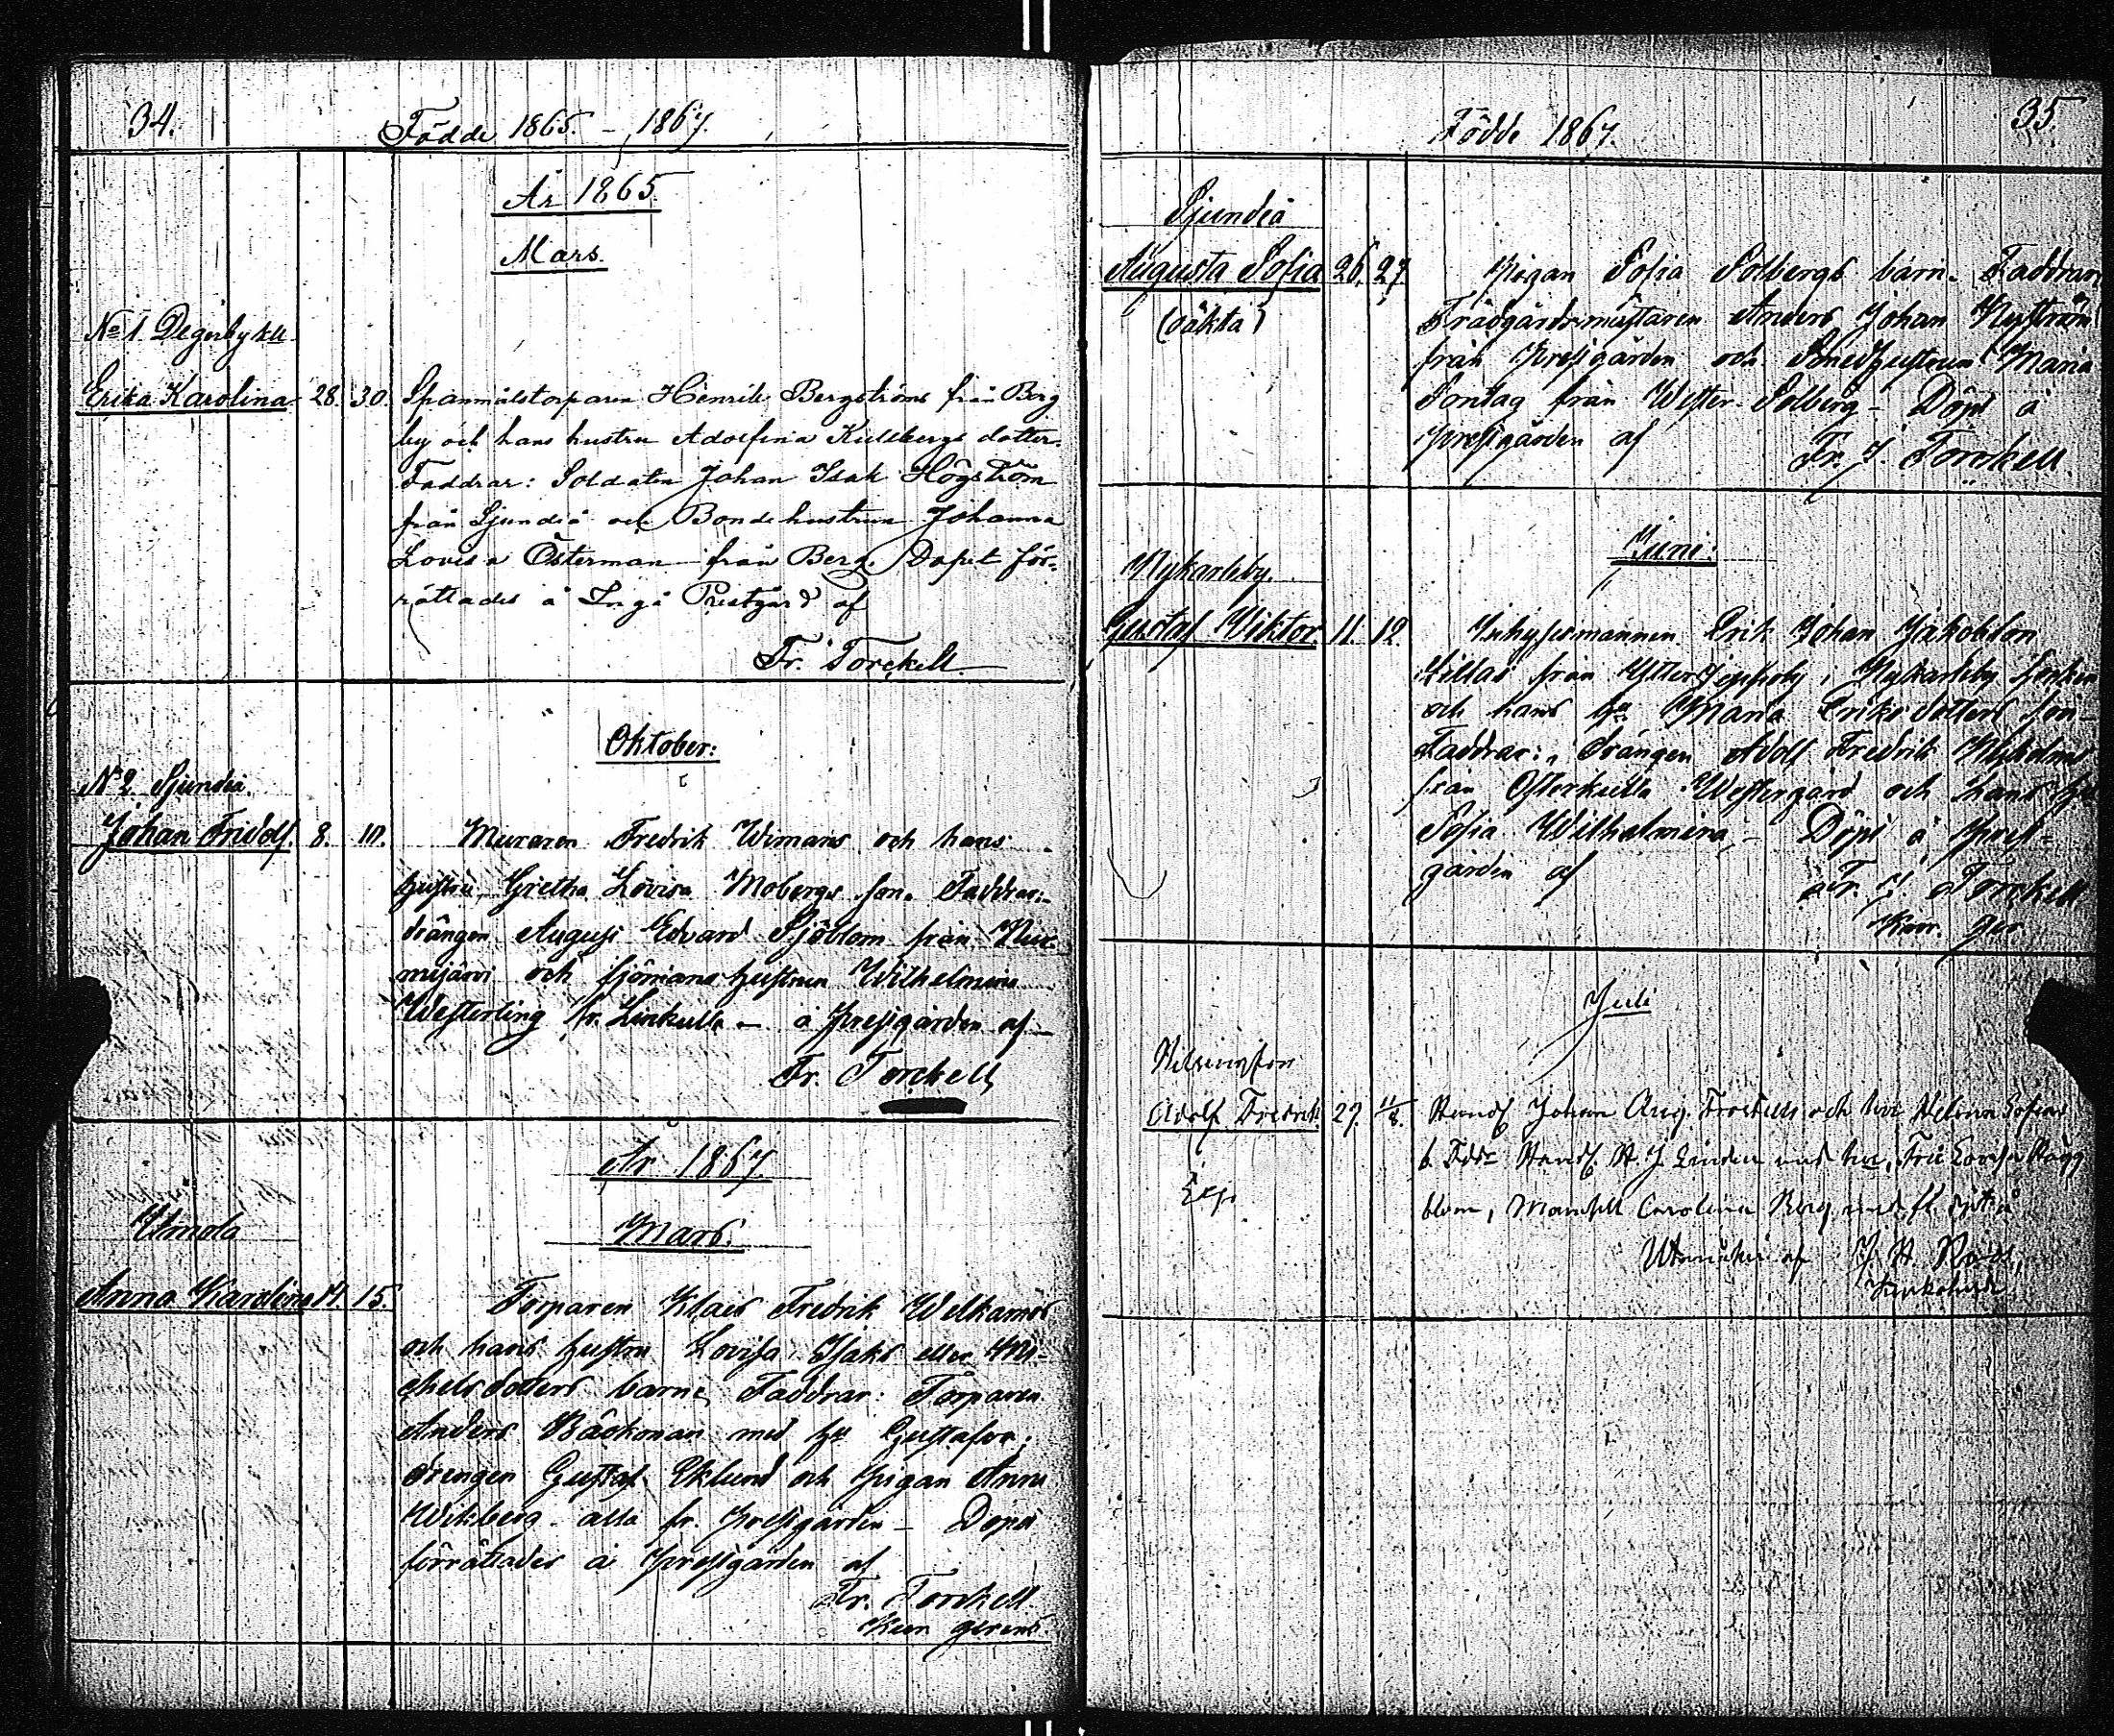 34.
Födde 1865. - 1867.
År 1865.
Mars.
No 1. Degerby kll
Erika Karolina 28. 30. Spannmålstorparen Henrik Bergströms från Berg
by och hans hustru Adolfina Kullbergs dotter.
Faddrar: Soldaten Johan Isak Högström
från Sjundeå och Bondehustrun Johanna
Lovisa Österman från Berg. Dopet för-
rättades å Ingå Prestgård af
Fr. Torckell
Oktober:
No 2 Sjundeå.
Johan Fridolf. 8. 10. Muraren Fredrik Wimans och hans
hustru Gretha Lovisa Mobergs son. Faddrar:
drängen August Edvard Sjöblom från Nur-
mijärvi och sjömanshustrun Wilhelmina
Westerling fr. Linkulla - å Prestgården af
Fr. Torckell
År 1867.
Mars.
Anna Karolina 14. 15. Torparen Klaes Fredrik Welkamos
och hans hustru Lovisa Isaks eller Mi-
chelsdotters barn. Faddrar: Torparen
Anders Bäckman med hu Gustafva;
drengen Gustaf Eklund och pigan Anna
Wikberg alla fr. Prestgården - Dopet
förrättades å Prestgården af
Fr. Torckell
35.
Födde 1867.
Sjundeå
Augusta Sofia 26. 27. Pigan Sofia Solbergs barn. Faddrar
(oäkta) Trädgårdsmästaren Anders Johan Nyström
från Prestgården och Smedhustrun Maria
Sontag från Wester-Solberg - Döpt å
Prestgården af Fr. J. Torckell
Juni:
Nykarleby.
Gustaf Wiktor. 11. 12. Inhysesmannen Erik Johan Jakobson
från Ytterjeppoby i Nykarleby socken
och hans hu Maria Eriksdotters son -
Faddrar: drängen Adolf Fredrik Nyholm
från Österkulla Westergård och hans hu
Sofia Wilhelmina - Döpt å Prest-
gården af Fr. J. Torckell
Juli
Helsingfors
Adolf Fredrik. 27. 11/8. Johan Aug. och hu Helena Sofias
b. Fddr med hu, Lovisa
blom, Mamsell Carolina Berg
af J. H.